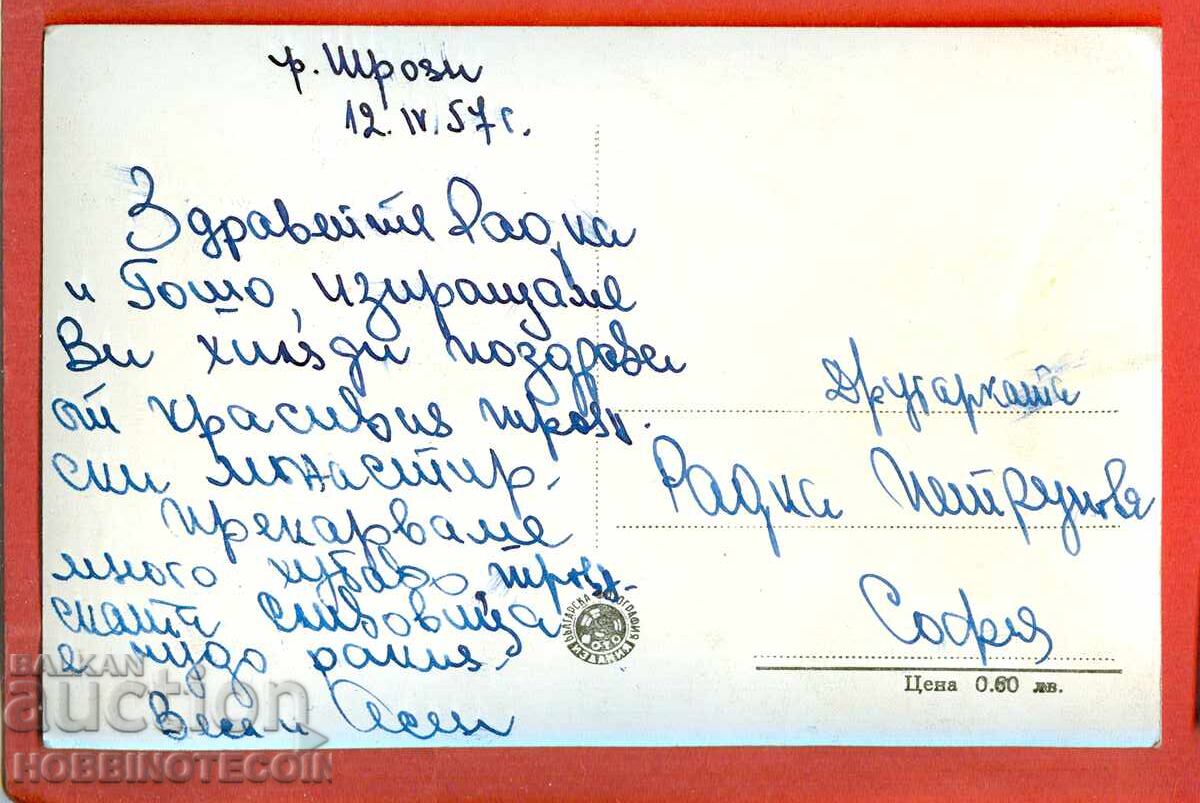 гр. Троян
12. IV. 57 г.
Здравейте Радка
и Гошо, изпращаме
Ви хиляди поздрави
от красивия троян-
ски манастир.
Прекарваме
много хубаво, троян-
ската сливовица
е чудо ракия.
Асен
Другарката
Радка
София
Цена 0.60 лв.
БЪЛГАРСКА ФОТОГРАФИЯ
BALKAN
auction
HOBBINOTECOIN